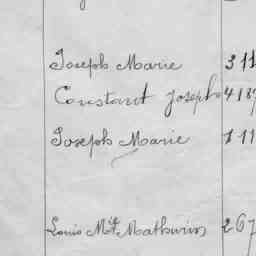 Joseph Marie 311
Constant Joseph 418
Joseph Marie 111
Louis M. Mathurin 267